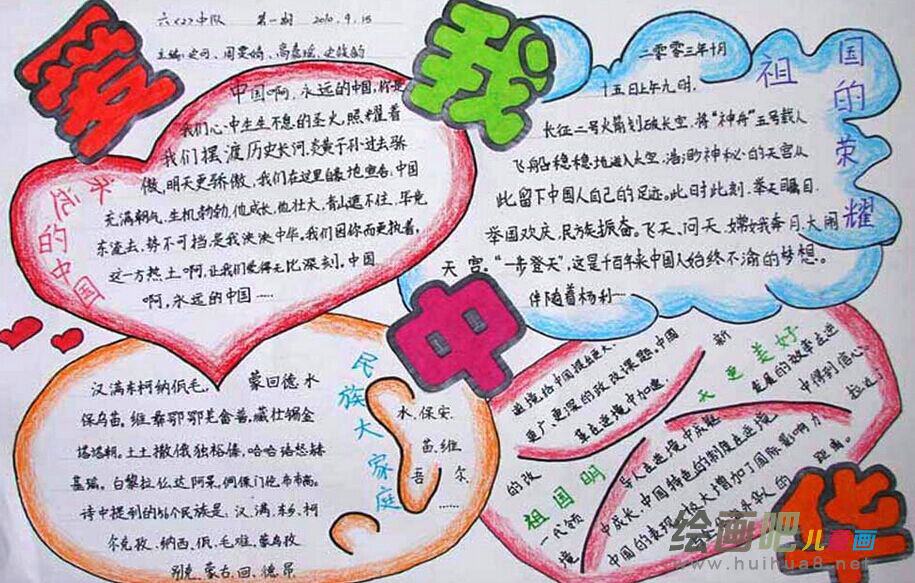 六〈2〉中队 第一期 2010.9.15
主编:
爱
我
中
华
永远的中国
中国啊,永远的中国,你是
我们心中生生不息的圣火,照耀着
我们摆渡历史长河,炎黄子孙过去骄
傲,明天更骄傲,我们在这里自豪地宣告,中国
充满朝气,生机勃勃,他成长,他壮大,青山遮不住,毕竟
东流去,势不可挡是我泱泱中华,我们因你而更执着,
这一方热土啊,让我们爱得无比深刻,中国
啊,永远的中国……
祖国的荣耀
二零零三年十月
十五日上午九时,
长征二号火箭划破长空,将“神舟”五号载人
飞船稳稳地送入太空,浩渺神秘的天宫从
此留下中国人自己的足迹。此时此刻,举天瞩目,
举国欢庆,民族振奋。飞天、问天、嫦娥奔月、大闹
天宫。“一步登天”,这是千百年来中国人始终不渝的梦想。
伴随着杨利…
民族大家庭
汉满东柯纳佤毛, 蒙回德水
保乌苗。维
塔塔朝。土土撒俄独裕傣,哈哈珞怒赫
基瑞。白黎拉仫达阿景,
诗中提到的56个民族是:汉、满、东乡、柯
尔克孜、纳西、佤、毛难、蒙乌孜
别克、蒙古、回、德昂
水、保安、
苗、维
吾 尔、
……
祖国明天更美好
逆境给中国
更广、更深的改改课题。中国
革在逆境中加速,
新
发展的故事在逆
中得到信心,
的改
一代领
导人在逆境中成熟
境
中成长、中国特色的制度在逆境
中国的表现极大增加了国际影响力
距离。
绘画吧儿童画
www.huihua8.net